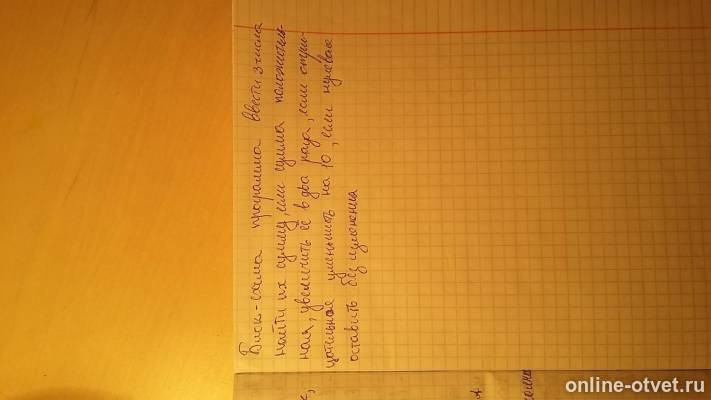 Блок-схема программа ввести 3 числа
найти их сумму, если сумма положитель-
ная, увеличить её в два раза, если отри-
цательная уменьшить на 10, если нулевая
оставить без изменения
online-otvet.ru